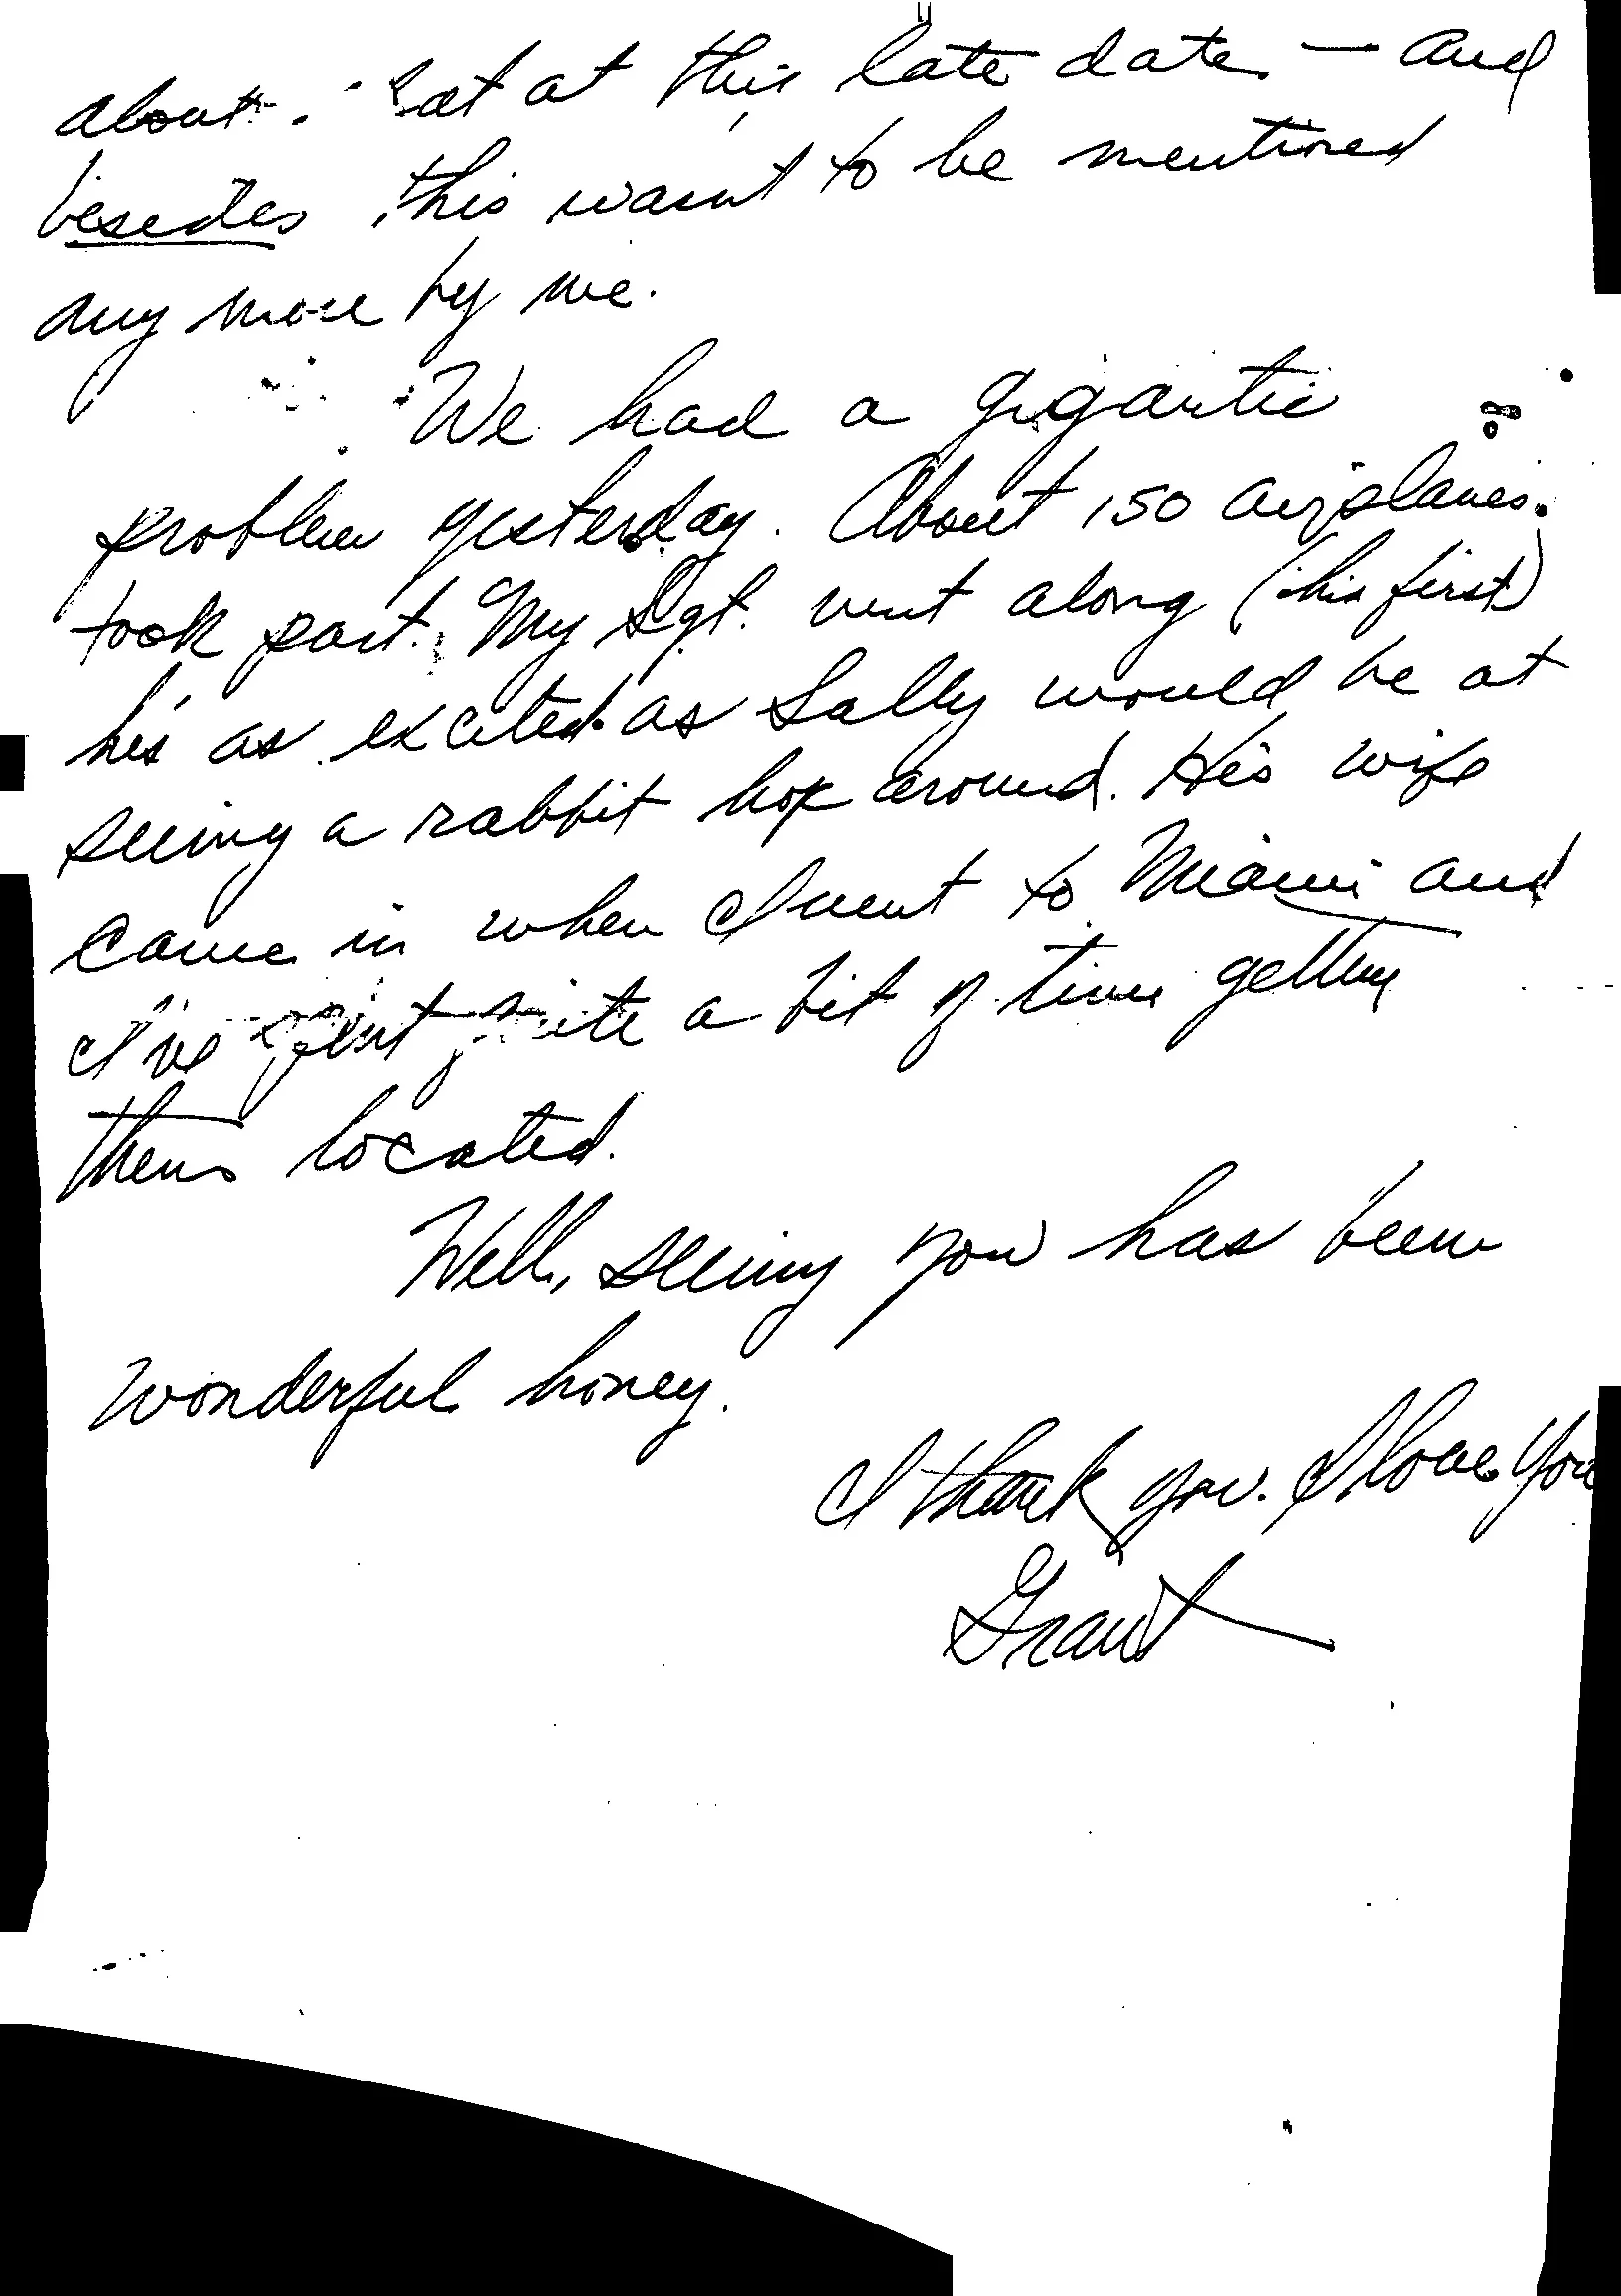 about. at this late date — and
besides this wasnt to be mentioned
any more by me.
We had a gigantic
problem yesterday. About 150 airplanes
took part. My Sgt. went along (his first)
he's as excited as Sally would be at
seeing a rabbit hop around. His wife
came in when I went to Miami and
I've spent quite a bit of time getting
them located.
Well, seeing you has been
wonderful honey.
I thank you. I love you
Grant